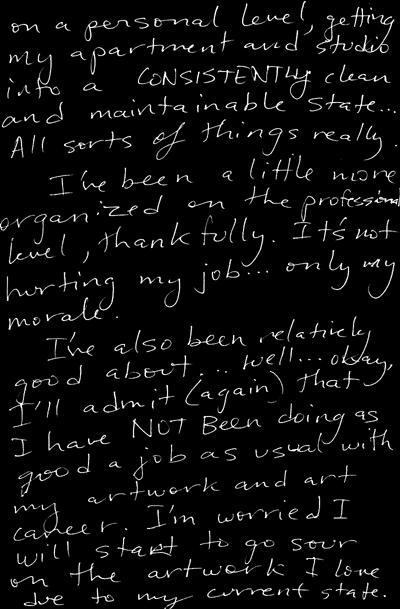 on a personal level, getting
my apartment and studio
into a CONSISTENTLY clean
and maintainable state...
All sorts of things really.
I've been a little more
organized on the professional
level, thankfully. It's not
hurting my job... only my
morale.
I've also been relatively
good about... well... okay,
I'll admit (again) that
I have NOT BEEN doing as
good a job as usual with
my artwork and art
career. I'm worried I
will start to go sour
on the artwork I love
due to my current state.